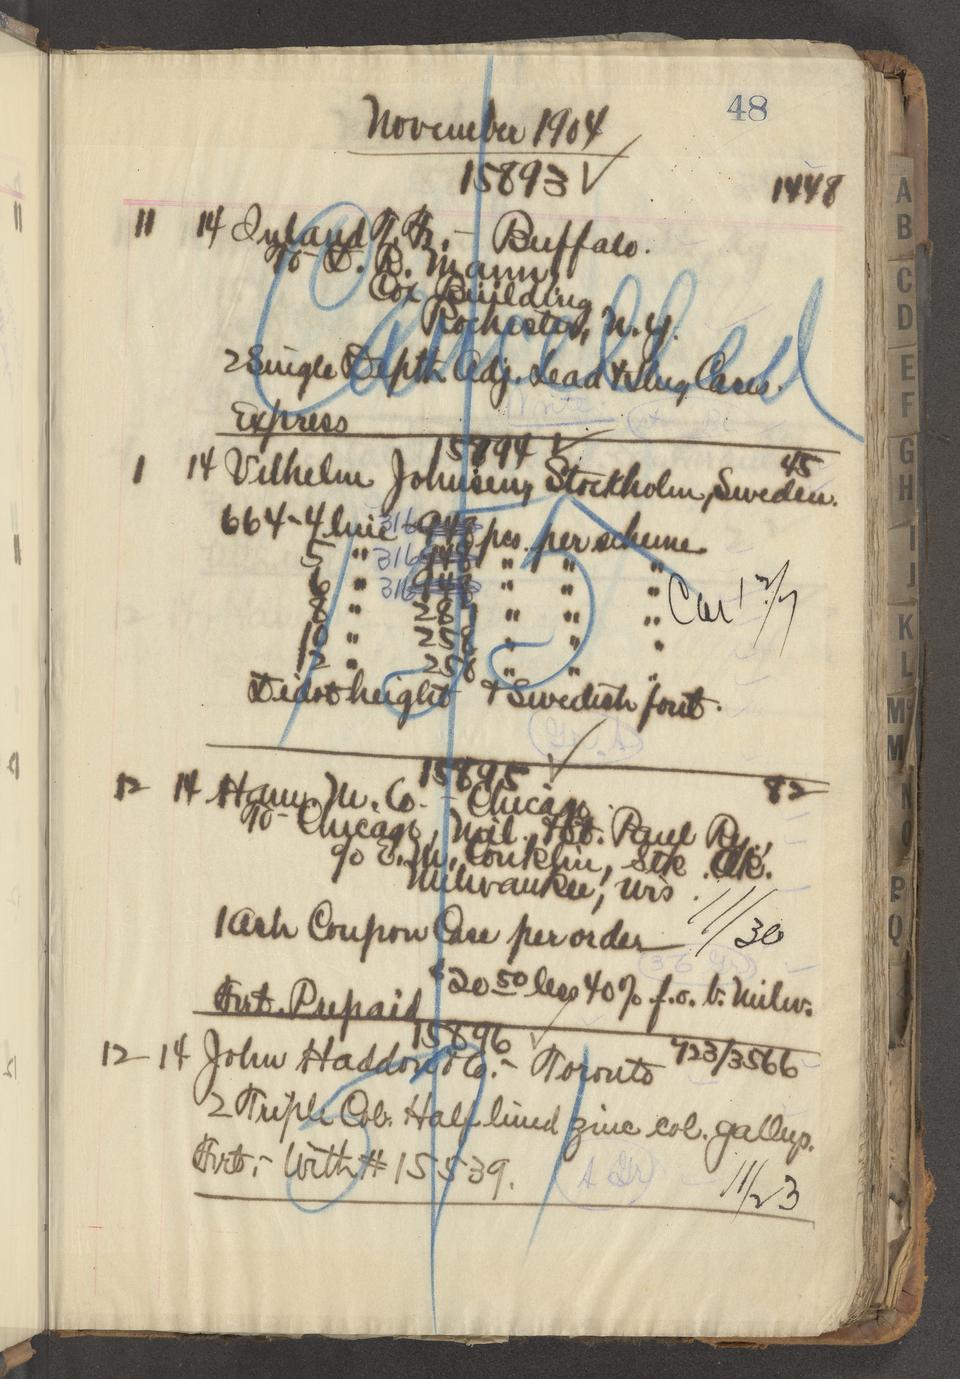 48
November 1904
15893 ✓ 1448
11 14 Inland T. F. - Buffalo.
To D. B. Mann,
Cox Building,
Rochester, N.Y.
Cancelled
2 Single Depth Adj. Lead & Slug Cases.
Express
15894 ✓ 45
1 14 Vilhelm Johnsen, Stockholm, Sweden.
664 - 4 line 316 948 pcs. per scheme
5 " 316 948 " " "
6 " 316 948 " " "
8 " 287 " " "
10 " 258 " " "
12 " 258 " " "
Didot height & Swedish font.
15895 ✓ 82
12 14 Ham. M. Co. - Chicago.
To Chicago, Mil. & St. Paul Ry.,
c/o E. M. Conklin, Stk.
Milwaukee, Wis.
1 Ash Coupon Case per order 11/30
$20.50 less 40% f.o.b. Milw.
Frt. Prepaid
15896 ✓ 923/3566
12 14 John Haddon & Co. - Toronto
2 Triple Col. Half lined zinc col. galleys.
Frt. - With # 15539.
11/23
A
B
C
D
E
F
G
H
I
J
K
L
M
M
N
O
P
Q